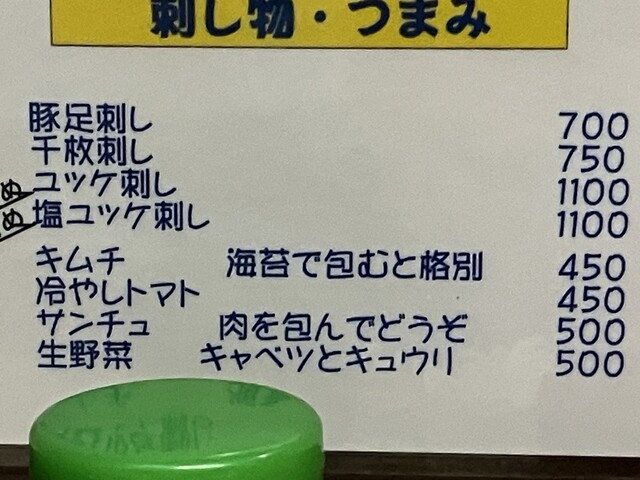 刺し物・つまみ
豚足刺し 700
千枚刺し 750
ユッケ刺し 1100
塩ユッケ刺し 1100
キムチ 海苔で包むと格別 450
冷やしトマト 450
サンチュ 肉を包んでどうぞ 500
生野菜 キャベツとキュウリ 500
め
め